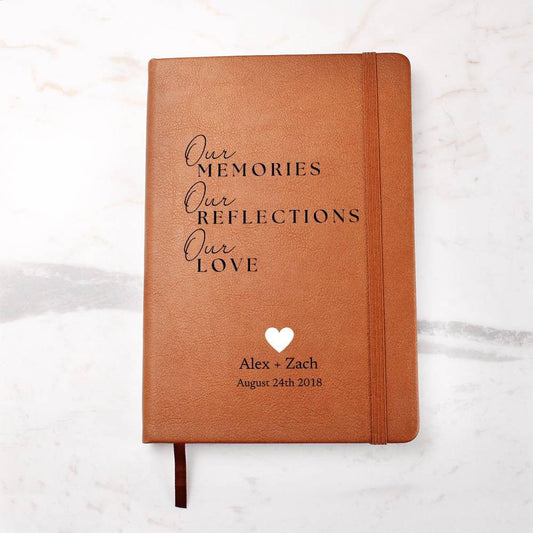 Our
MEMORIES
Our
REFLECTIONS
Our
LOVE
Alex + Zach
August 24th 2018